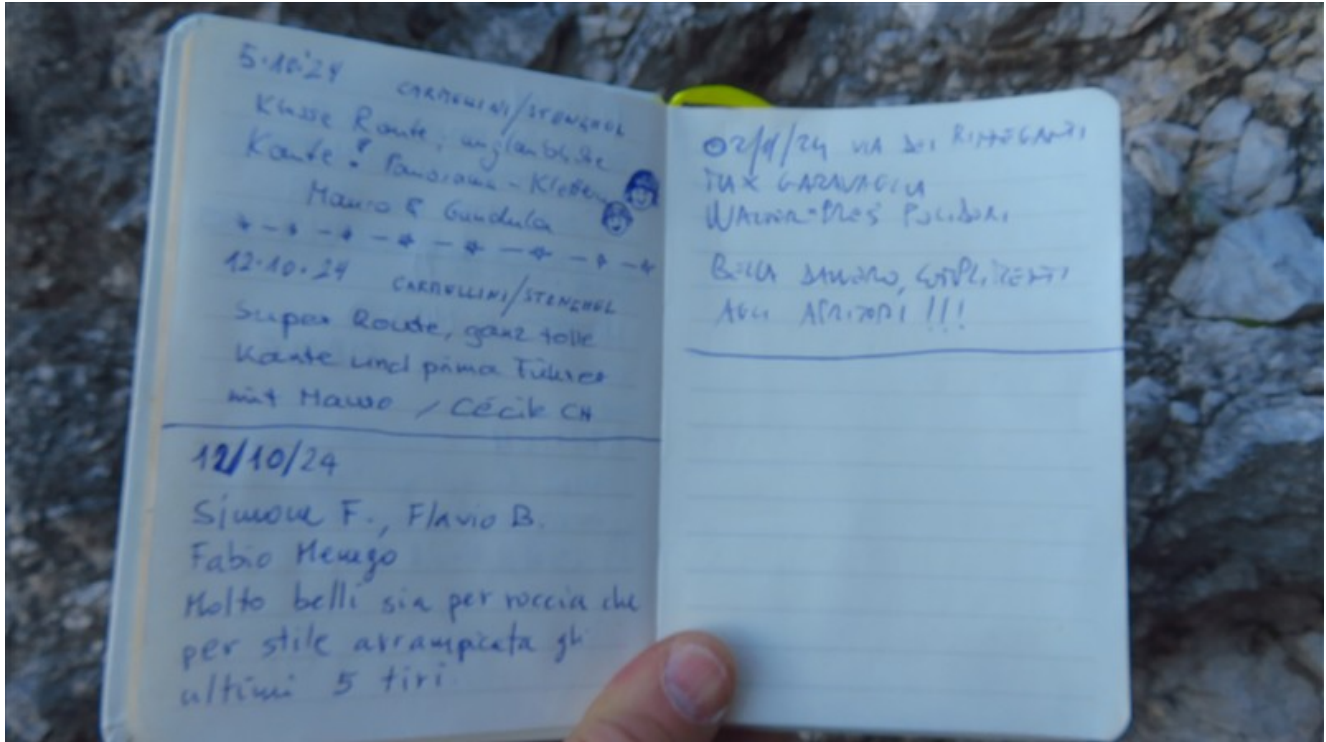 5.10.24 CARMELLINI/STENGHEL
Klasse Route, unglaubliche
Kante! Panorama-Klettern
Mauro & Gundula
12.10.24 CARMELLINI/STENGHEL
Super Route, ganz tolle
Kante und prima Führer
mit Mauro / Cécile CH
12/10/24
Simone F., Flavio B.
Fabio Menego
Molto belli sia per roccia che
per stile arrampicata gli
ultimi 5 tiri
02/11/24 VIA DEI RINNEGANTI
MAX GARAVAGLIA
POLIDORI
BELLA DAVVERO, COMPLIMENTI
AGLI APRITORI !!!